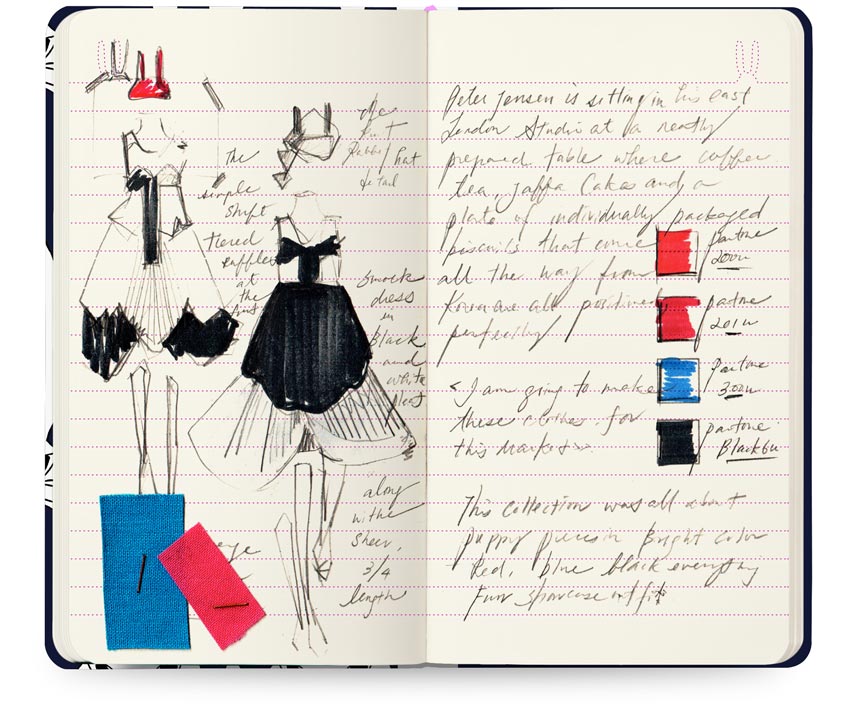 The
simple
shift
tiered
ruffles
at
the
hat
detail
Smock
dress
in
Black
and
white
pleat
along
withe
sheer,
3/4
length
Peter Jensen is sitting in his east
London Studio at a neatly
prepared table where coffee
tea, Jaffa Cakes and a
plate of individually packaged
biscuits that come
all the way from
Korea are all positively
perfectly
"I am going to make
these clothes for
this market"
This Collection was all about
puppy Bright color
Red, blue black everyday
Funn showcase outfit
pantone
200u
pantone
201u
pantone
300u
pantone
Black6u